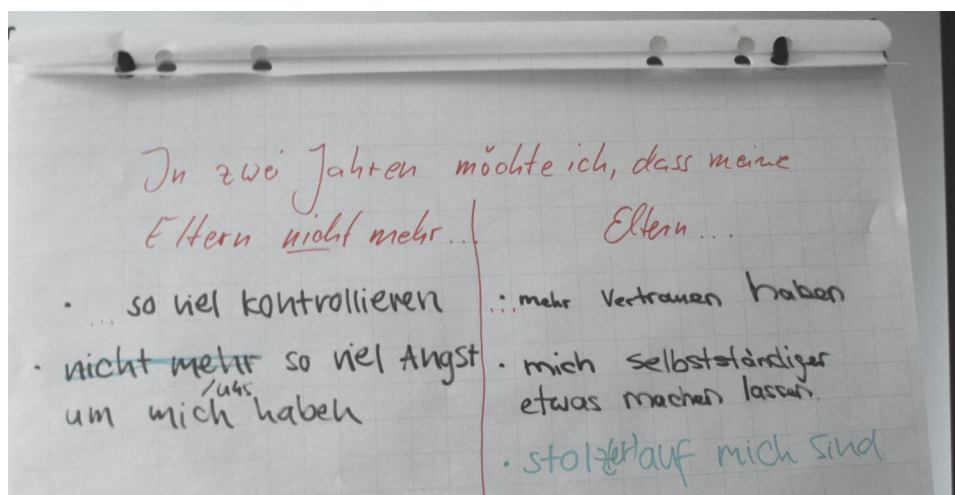 In zwei Jahren möchte ich, dass meine
Eltern nicht mehr...
... so viel kontrollieren
· nicht mehr so viel Angst
um mich /uns haben
Eltern...
... mehr Vertrauen haben
· mich selbstständiger
etwas machen lassen.
· stolz(er) auf mich sind